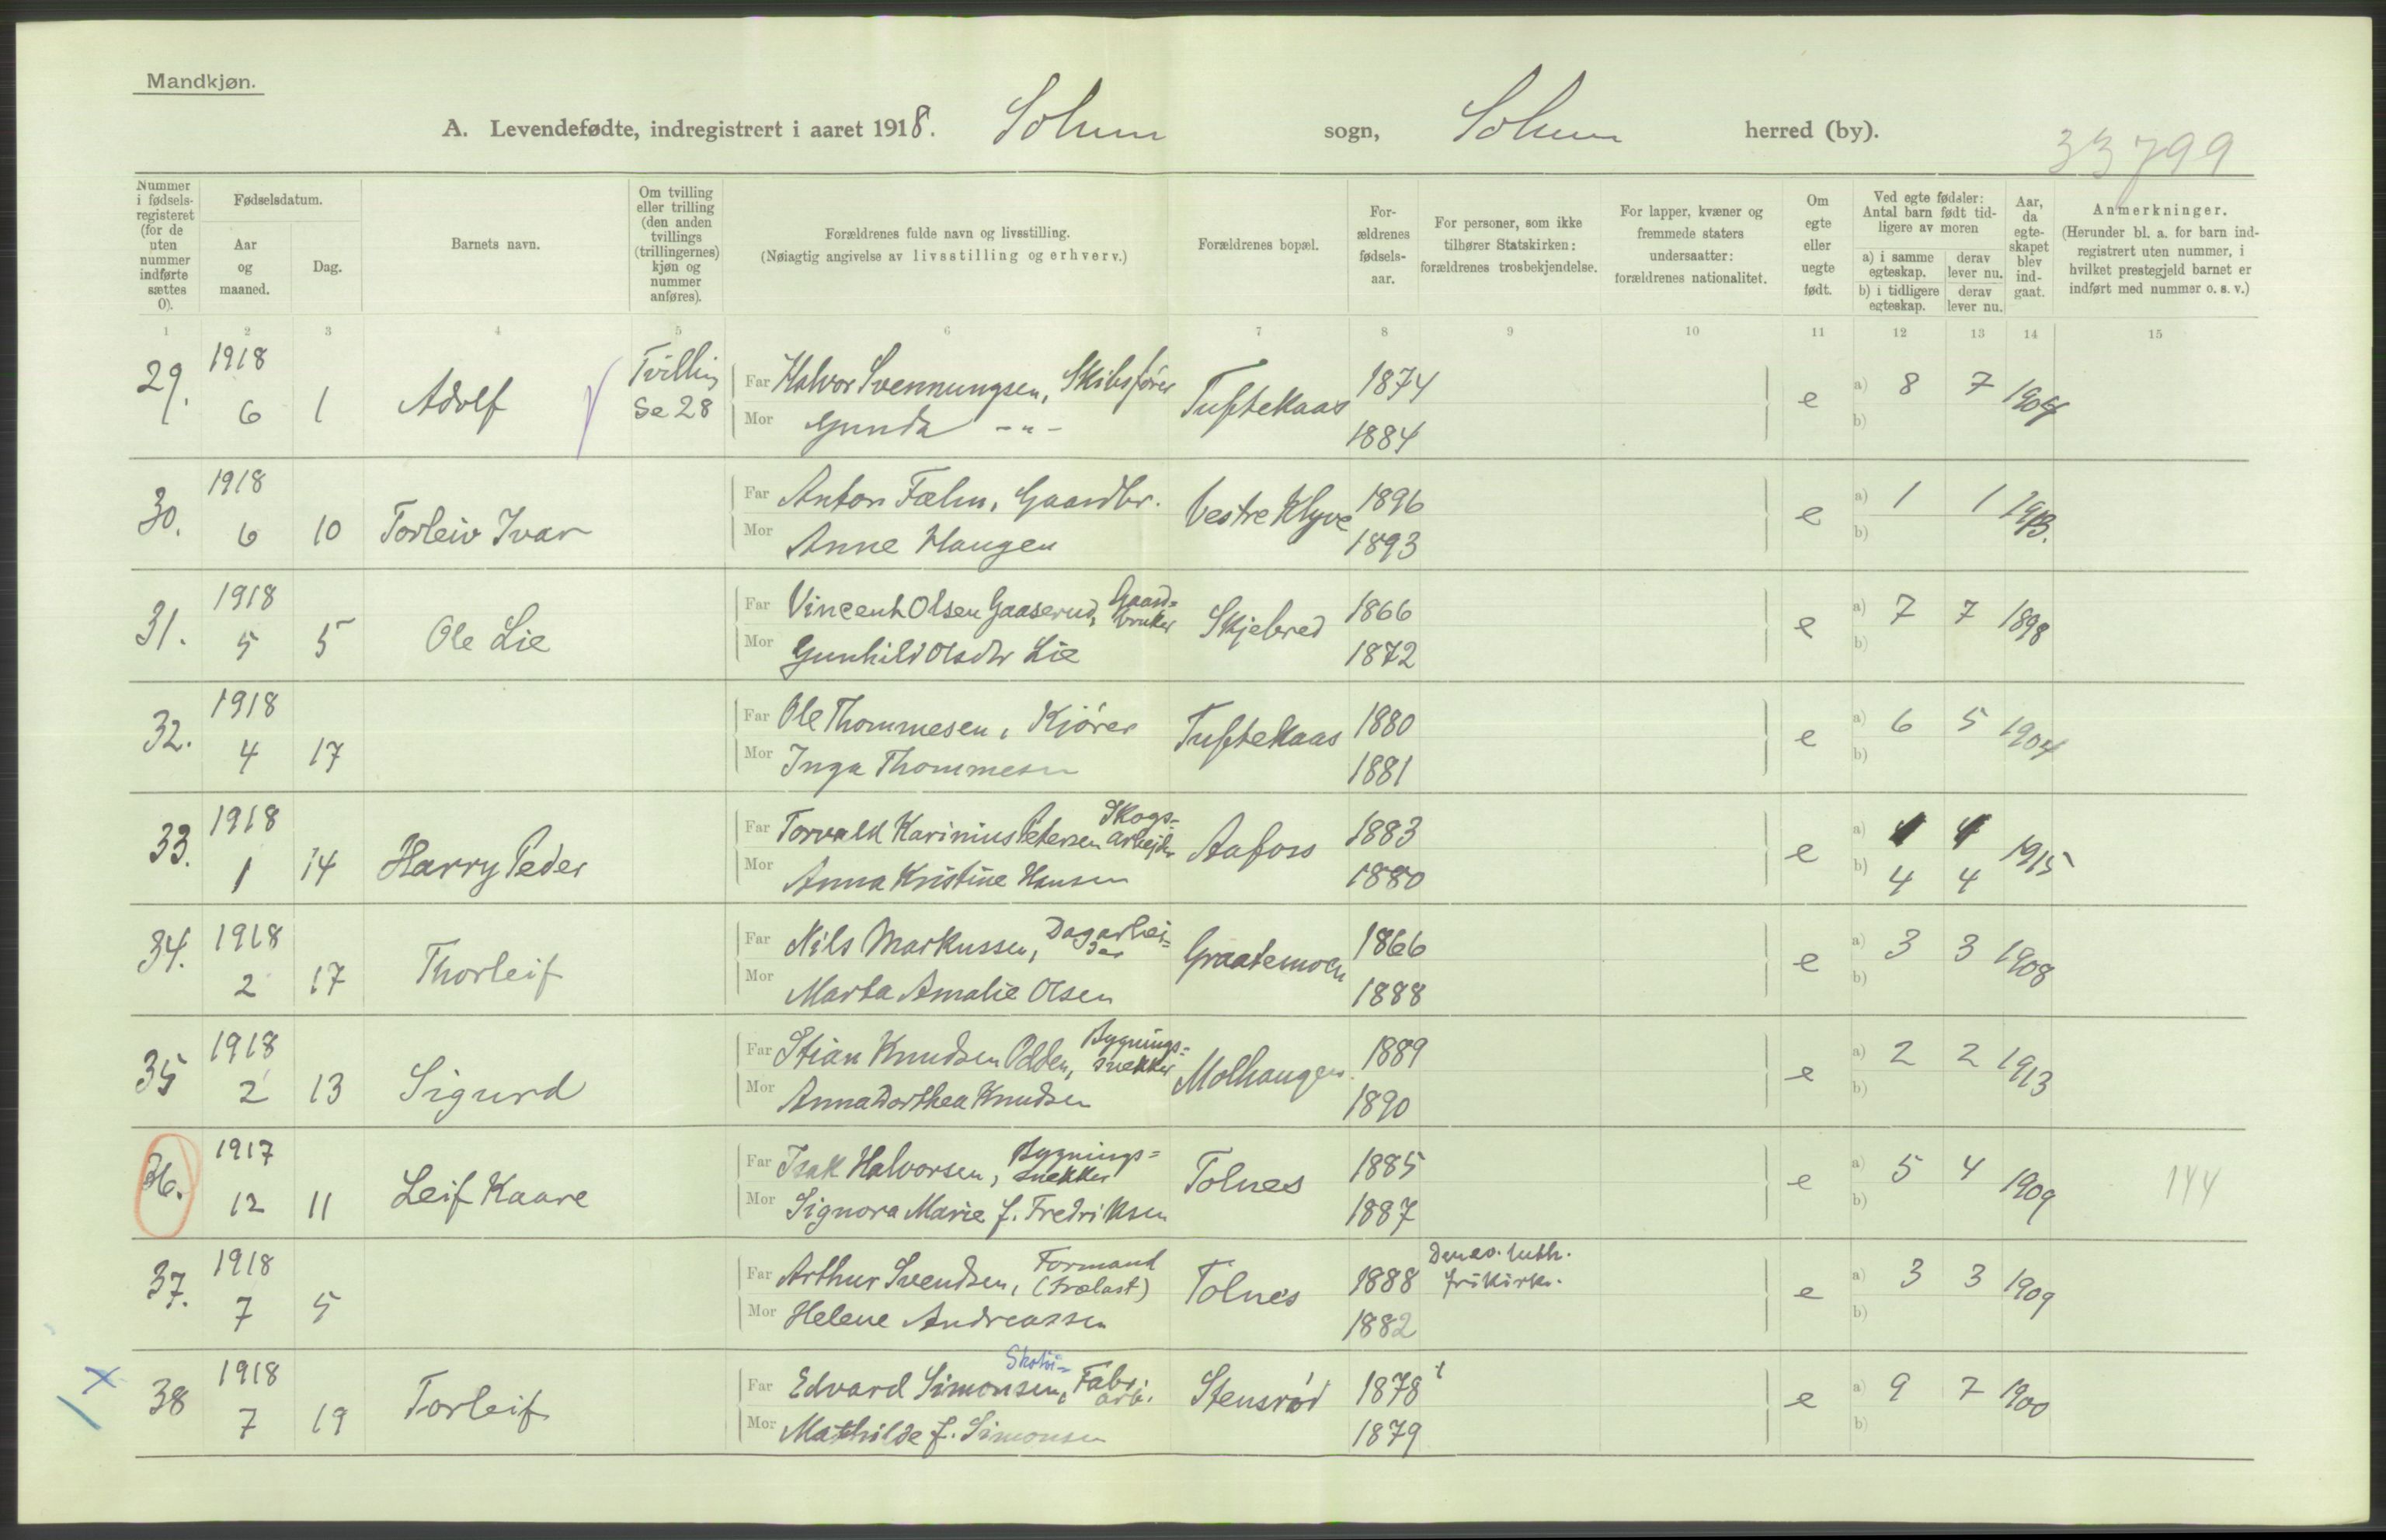 Mandkjøn.
A. Levendefødte, indregistrert i aaret 1918. Solum sogn, Solum herred (by).
33799
Nummer i fødselsregisteret (for de uten nummer indførte sættes 0).
Fødselsdatum.
Aar og maaned.
Dag.
Barnets navn.
Om tvilling eller trilling (den anden tvillings (trillingernes) kjøn og nummer anføres).
Forældrenes fulde navn og livsstilling.
(Nøiagtig angivelse av livsstilling og erhverv.)
Forældrenes bopæl.
Forældrenes fødselsaar.
For personer, som ikke tilhører Statskirken: forældrenes trosbekjendelse.
For lapper, kvæner og fremmede staters undersaatter: forældrenes nationalitet.
Om egte eller uegte født.
Ved egte fødsler: Antal barn født tidligere av moren
a) i samme egteskap.
derav lever nu.
b) i tidligere egteskap.
derav lever nu.
Aar, da egteskapet blev indgaat.
Anmerkninger.
(Herunder bl. a. for barn indregistrert uten nummer, i hvilket prestegjeld barnet er indført med nummer o. s. v.)
1 2 3 4 5 6 7 8 9 10 11 12 13 14 15
29. 1918 6 1 Adolf Tvilling Se 28
Far Halvor Svennungsen, Skibsfører Tuftekaas 1874 e a) 8 7 1904
Mor Gunda -"- 1884 b)
30. 1918 6 10 Torleiv Ivar
Far Anton Fælm, Gaardbr. Vestre Klyve 1896 e a) 1 1 1913.
Mor Anne Haugen 1893 b)
31. 1918 5 5 Ole Lie
Far Vincent Olsen Gaaserud, Gaard=bruker Skjebred 1866 e a) 7 7 1898
Mor Gunhild Olsdtr Lie 1872 b)
32. 1918 4 17
Far Ole Thommesen, Kjører Tuftekaas 1880 e a) 6 5 1904
Mor Inga Thommesen 1881 b)
33. 1918 1 14 Harry Peder
Far Torvald Karinius Petersen Skogs=arbejder Aafoss 1883 e a) 1915
Mor Anna Kristine Hansen 1880 b) 4 4
34. 1918 2 17 Thorleif
Far Nils Markussen, Dagarbei=der Graatenmoen 1866 e a) 3 3 1908
Mor Marta Amalie Olsen 1888 b)
35 1918 2 13 Sigurd
Far Stian Knudsen Odden, Bygnings=snekker Molhaugen. 1889 e a) 2 2 1913
Mor Anna Dorthea Knudsen 1890 b)
36. 1917 12 11 Leif Kaare
Far Isak Halvorsen, Bygnings=snekker Tolnes 1885 e a) 5 4 1909 144
Mor Signora Marie f. Fredriksen 1887 b)
37. 1918 7 5
Far Arthur Svendsen, Formand (trælast) Tolnes 1888 Den ev. luth. frikirke. e a) 3 3 1909
Mor Helene Andreassen 1882 b)
38 1918 7 19 Torleif
Far Edvard Simonsen, Skotøi= Fabr. arb. Stensrød 1878 e a) 9 7 1900
Mor Mathilde f. Simonsen 1879 b)